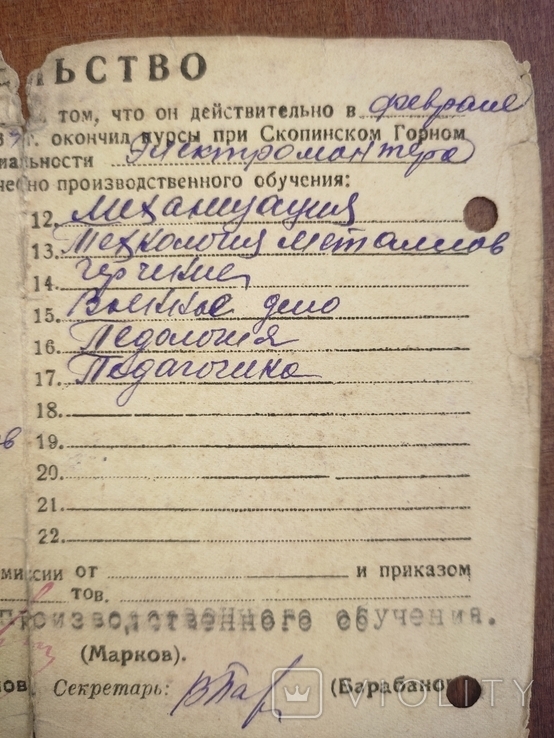 ЬСТВО
том, что он действительно в феврале
г. окончил курсы при Скопинском Горном
иальности Электромонтера
чебно производственного обучения:
12. Механизация
13. Технология металлов
14. Черчение
15. Военное дело
16. Педология
17. Педагогика
18.
19.
20.
21.
22.
миссии от и приказом
тов.
Производственного обучения.
(Марков).
нов. Секретарь: (Барабанов)
VIOLITY